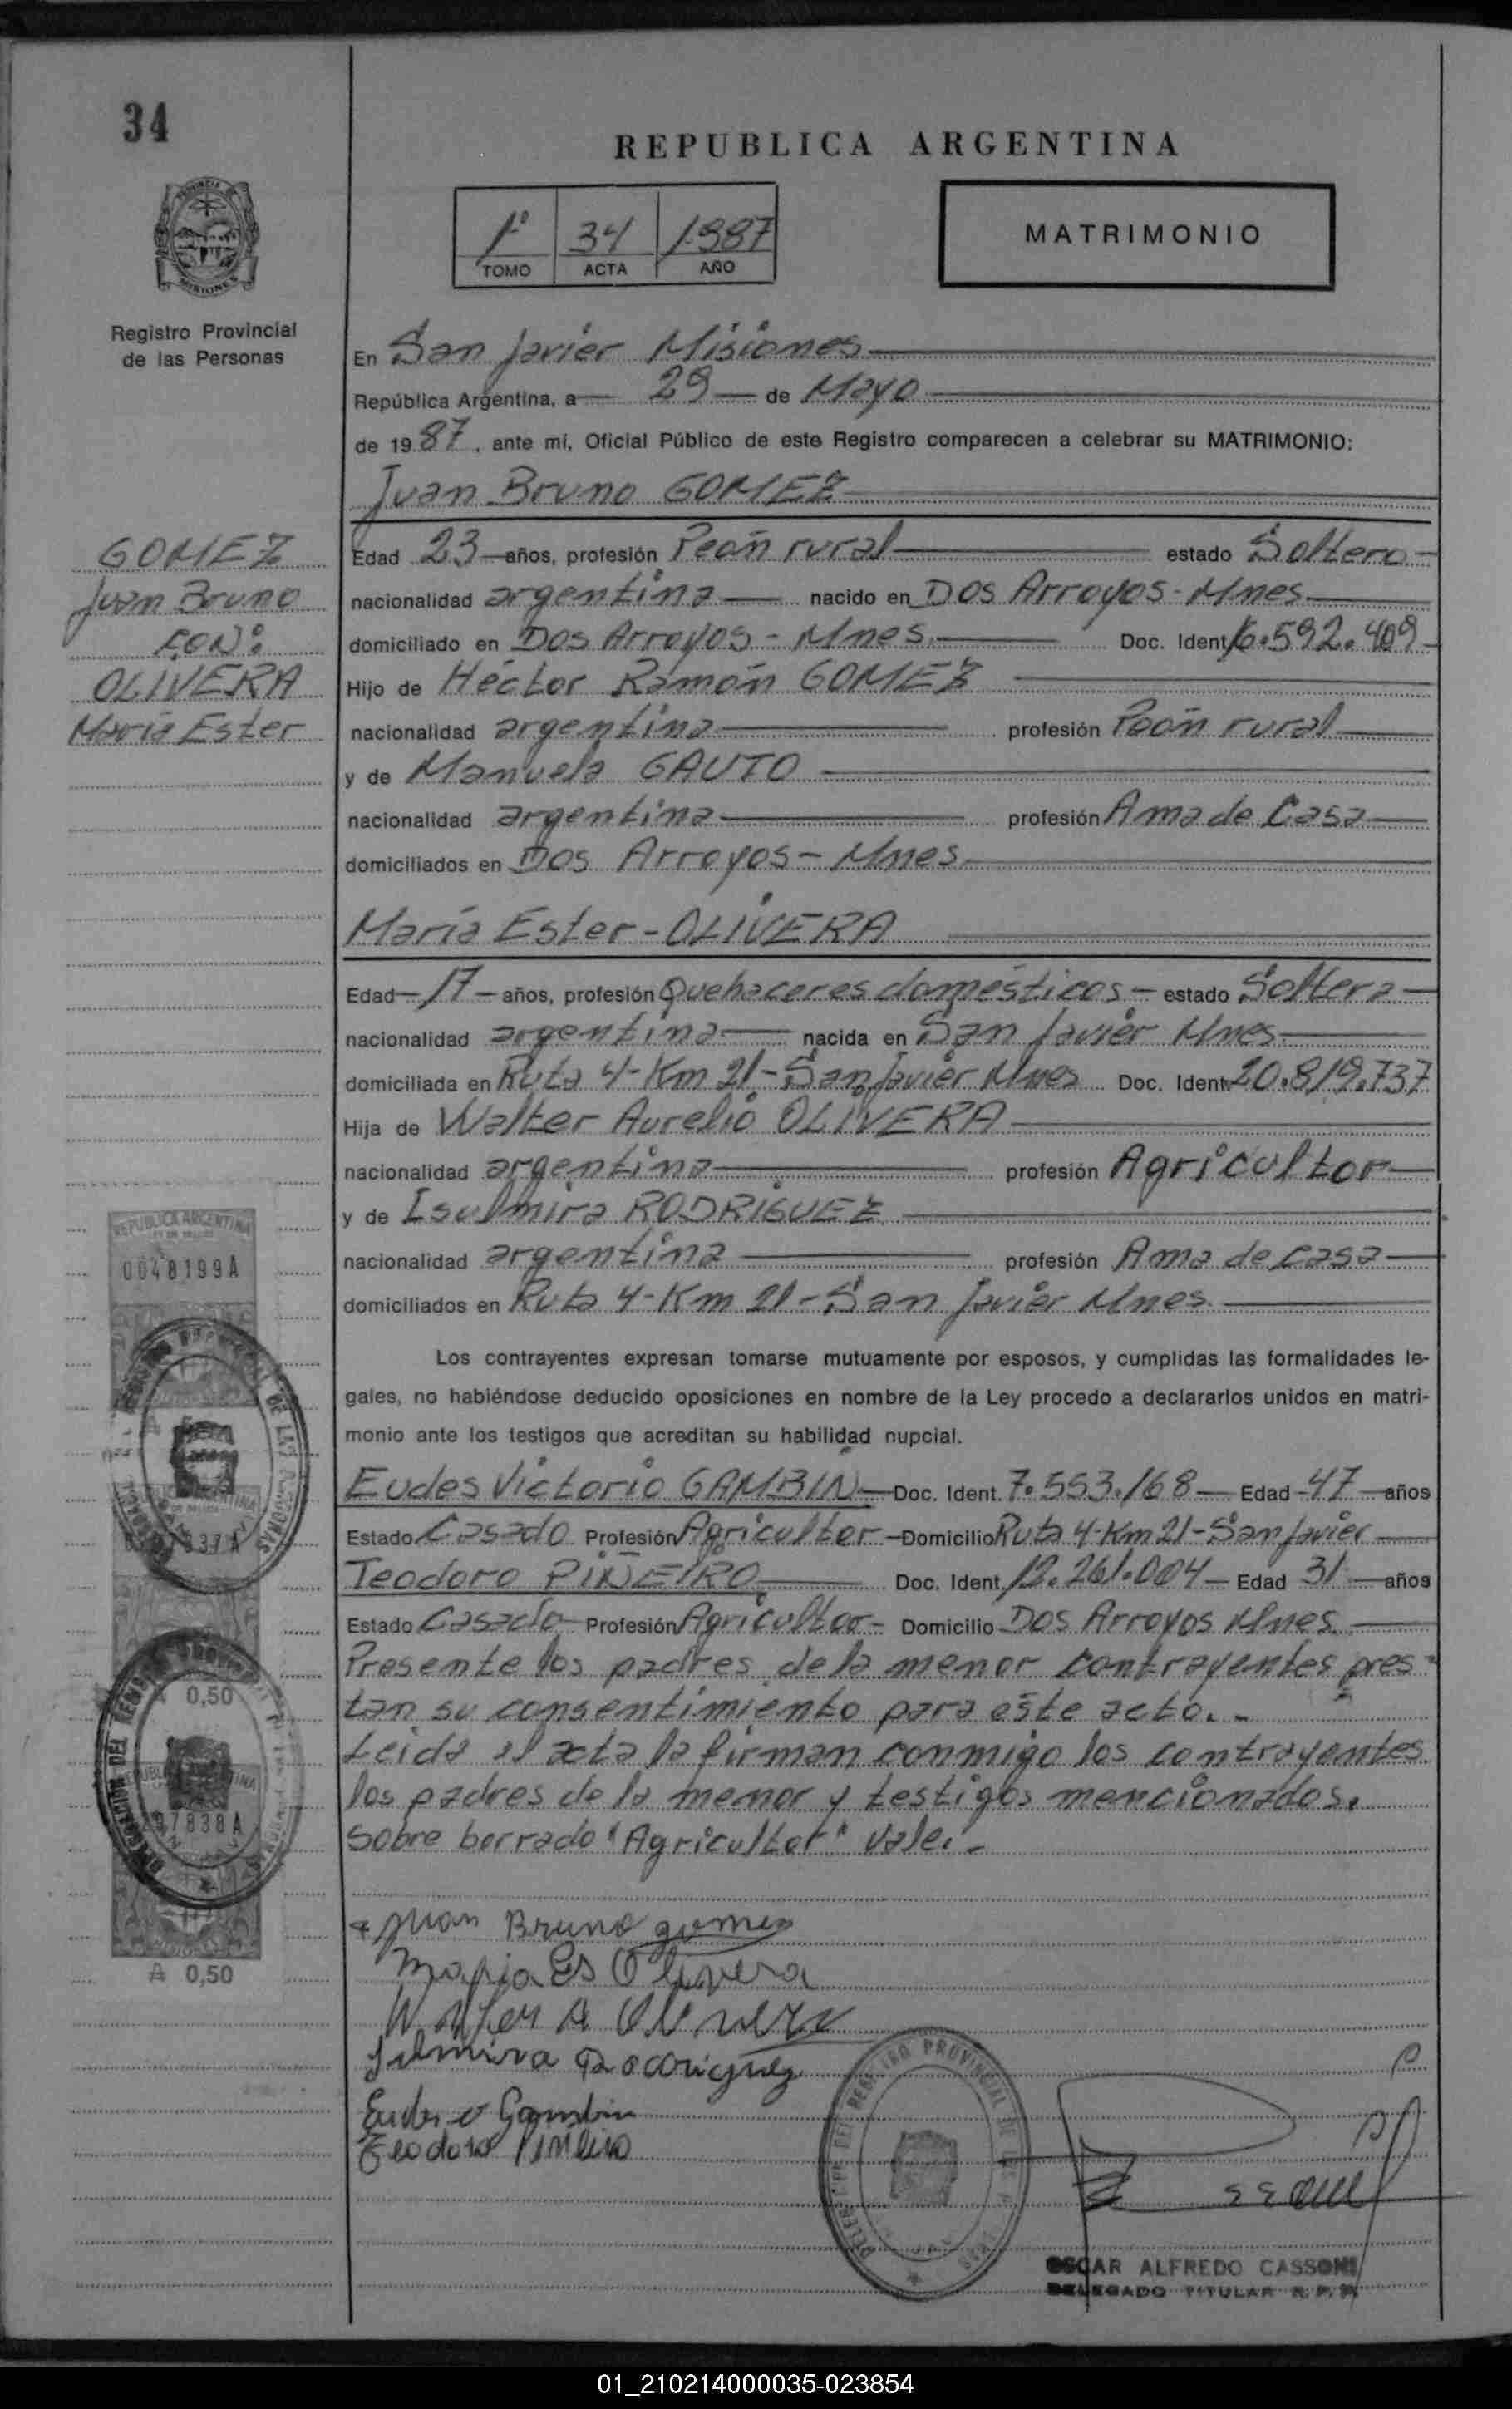 34
REPUBLICA ARGENTINA
1º 34 1987
TOMO ACTA AÑO
MATRIMONIO
PROVINCIA DE
MISIONES
Registro Provincial
de las Personas
En San Javier Misiones
República Argentina, a 29 de Mayo
de 1987, ante mí, Oficial Público de este Registro comparecen a celebrar su MATRIMONIO:
Juan Bruno GOMEZ
GOMEZ
Juan Bruno
CON:
OLIVERA
María Ester
Edad 23 años, profesión Peón rural estado Soltero
nacionalidad argentina nacido en Dos Arroyos - Mnes
domiciliado en Dos Arroyos - Mnes. Doc. Ident. 16.592.409
Hijo de Héctor Ramón GOMEZ
nacionalidad argentina profesión Peón rural
y de Manuela GAUTO
nacionalidad argentina profesión Ama de Casa
domiciliados en Dos Arroyos - Mnes.
María Ester - OLIVERA
Edad 17 años, profesión Quehaceres domésticos estado Soltera
nacionalidad argentina nacida en San Javier Mnes
domiciliada en Ruta 4 - Km 21 - San Javier Mnes Doc. Ident. 20.819.737
Hija de Walter Aurelio OLIVERA
nacionalidad argentina profesión Agricultor
y de Isulmira RODRIGUEZ
nacionalidad argentina profesión Ama de casa
domiciliados en Ruta 4 - Km 21 - San Javier Mnes.
Los contrayentes expresan tomarse mutuamente por esposos, y cumplidas las formalidades le-
gales, no habiéndose deducido oposiciones en nombre de la Ley procedo a declararlos unidos en matri-
monio ante los testigos que acreditan su habilidad nupcial.
Eudes Victorio GAMBIN Doc. Ident. 7.553.168 Edad 47 años
Estado Casado Profesión Agricultor Domicilio Ruta 4 - Km 21 - San Javier
Teodoro PIÑEIRO Doc. Ident. 12.261.004 Edad 31 años
Estado Casado Profesión Agricultor - Domicilio Dos Arroyos Mnes.
Presente los padres de la menor contrayentes pres-
tan su consentimiento para este acto. -
Leida el acta la firman conmigo los contrayentes
los padres de la menor y testigos mencionados.
Sobre borrado "Agricultor" vale. -
REPUBLICA ARGENTINA
0048199A
0,50
97838A
A 0,50
Juan Bruno gomez
Maria Es Olivera
Walter A Olivera
Sulmira Rodriguez
Eudes v Gambin
Teodoro Piñeiro
DELEGACION DEL REGISTRO PROVINCIAL DE LAS PERSONAS
OSCAR ALFREDO CASSONI
DELEGADO TITULAR R. P. P.
01_210214000035-023854